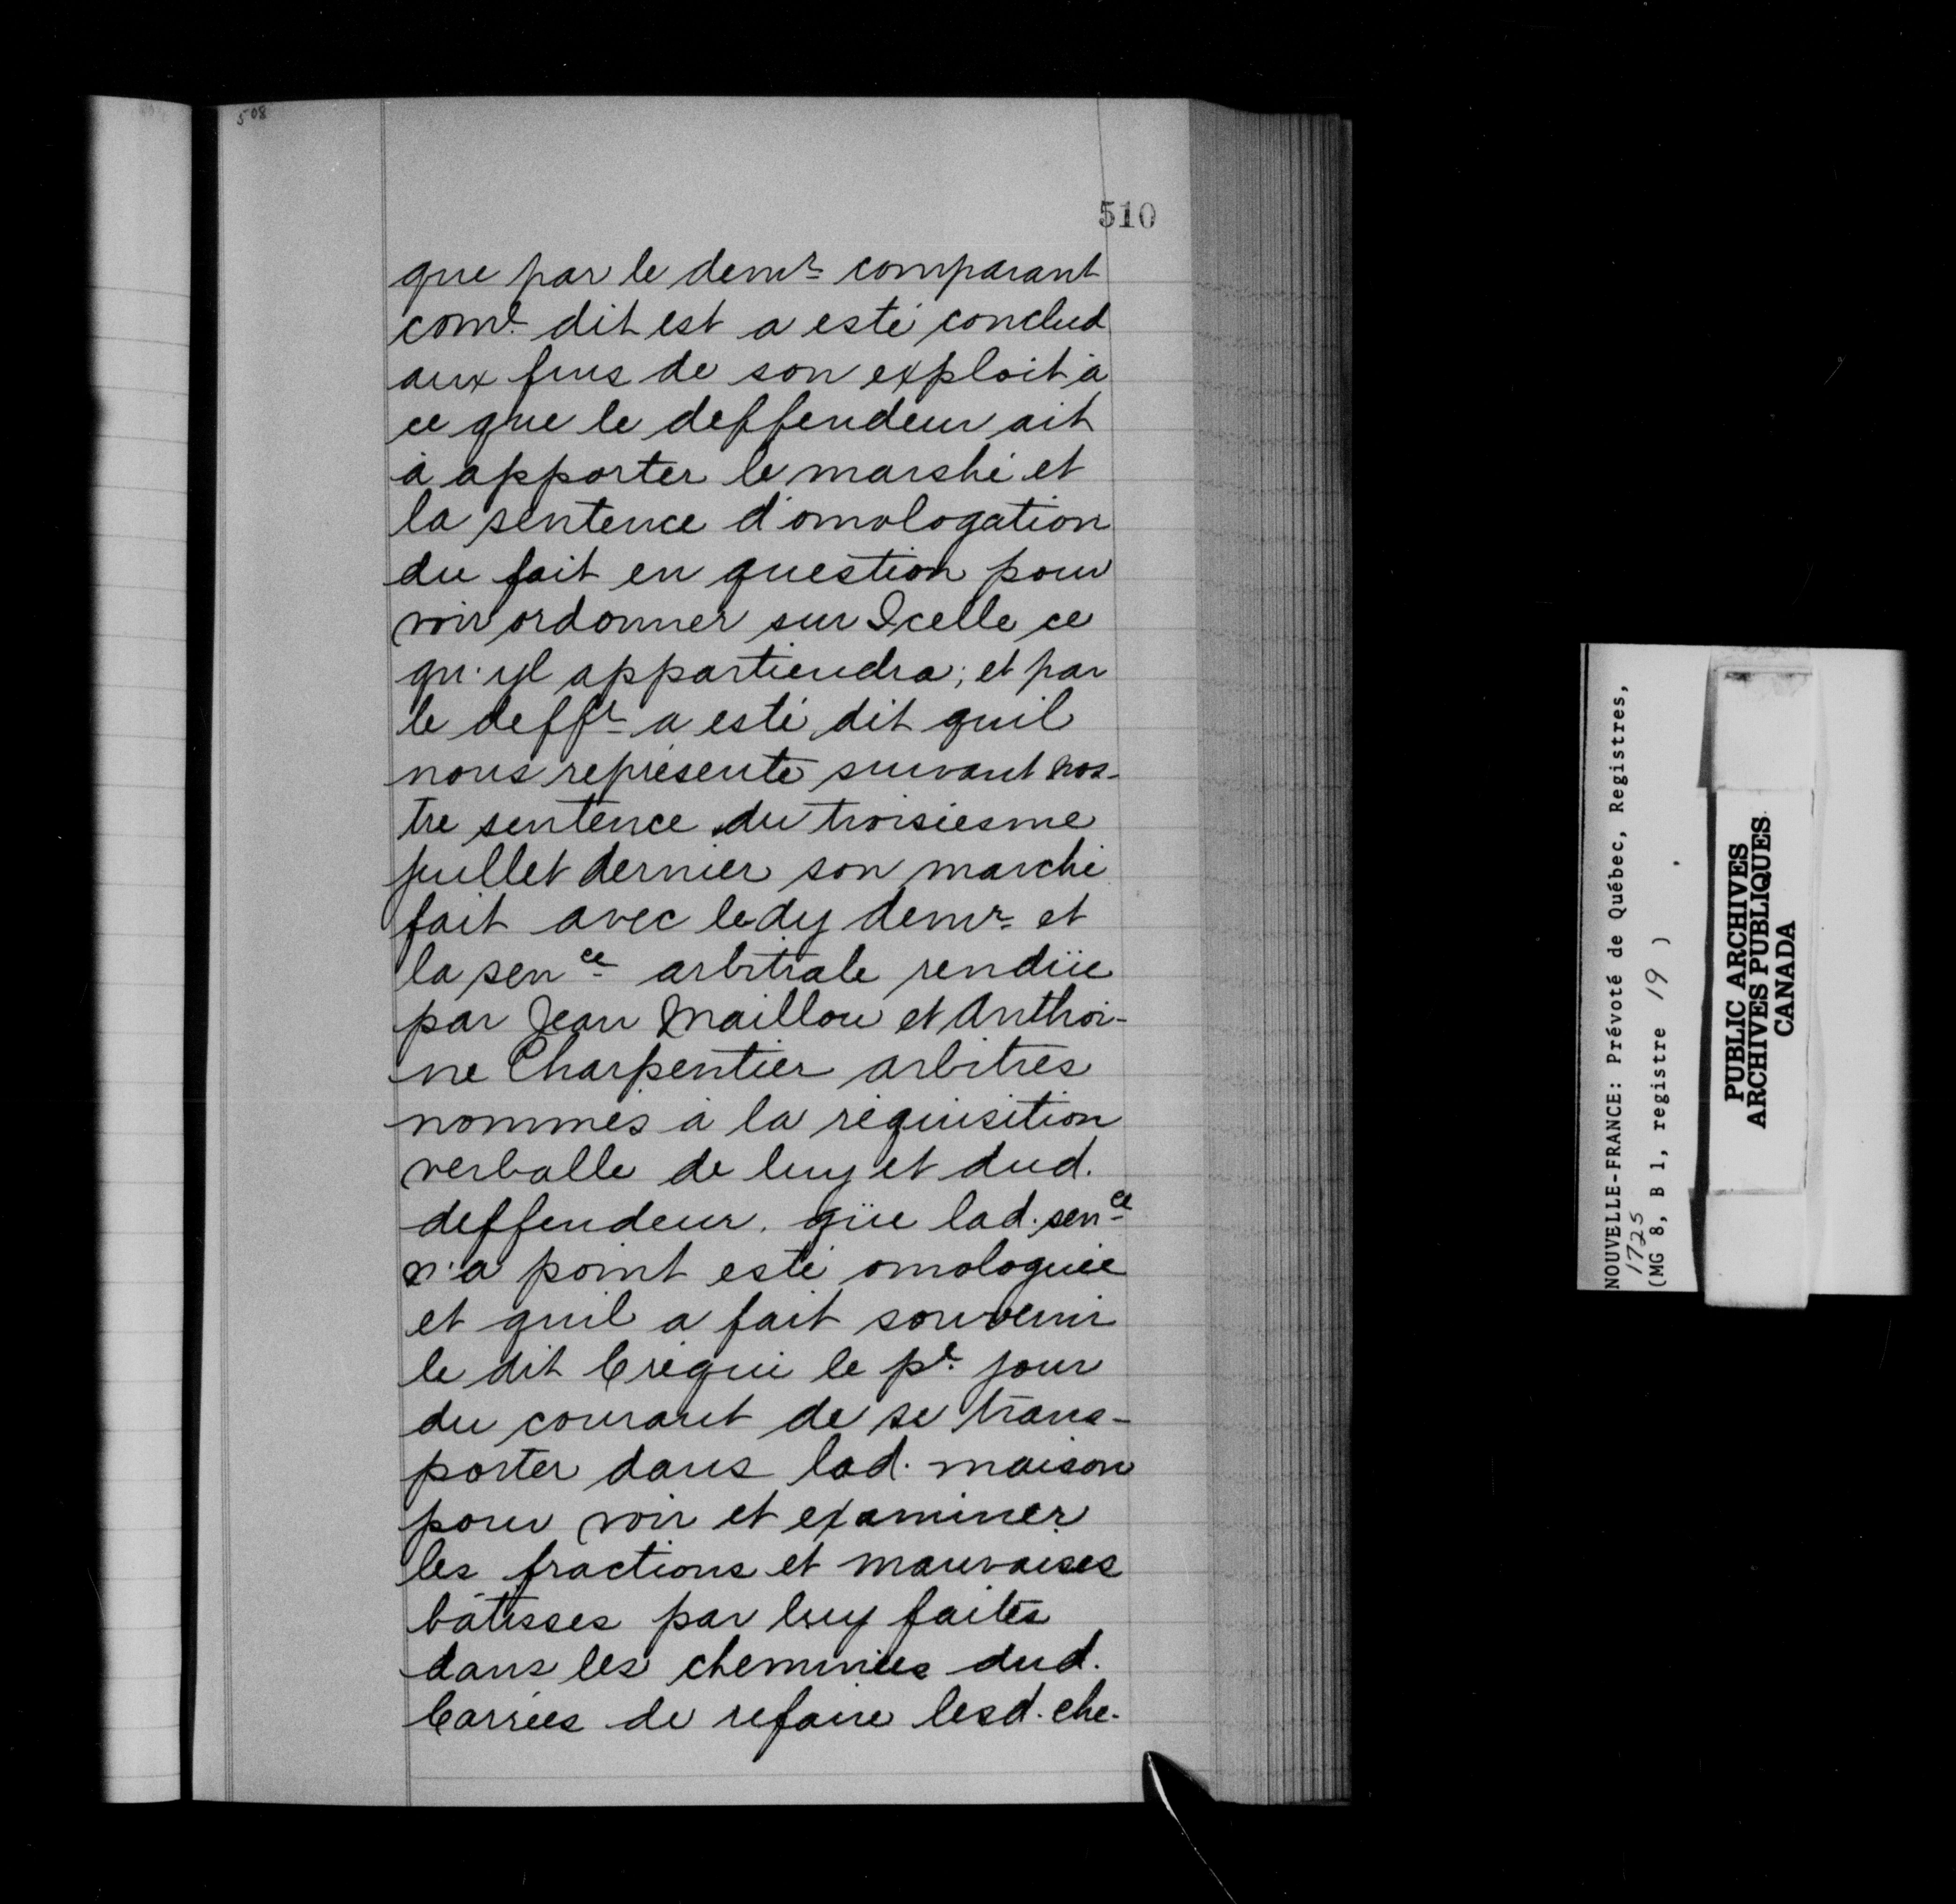 508
510
que par le demr comparant
come dit est a esté conclud
aux fins de son exploit à
ce que le deffendeur ait
à apporter le marshé et
la sentence d'omologation
du fait en question pour
voir ordonner sur Icelle ce
qu'yl appartiendra; et par
le deffr a esté dit quil
nous représente suivant nos-
tre sentence du troisiesme
juillet dernier son marché
fait avec ledy demr et
la sence arbitrale rendüe
par Jean Maillou et Anthoi-
ne Charpentier arbitres
nommés à la réquisition
verballe de luy et dud.
deffendeur. qüe lad. sence
n'a point esté omologuée
et quil a fait souvenir
le dit Créqui le pr jour
du courant de se trans-
porter dans lad. maison
pour voir et examiner
les fractions et mauvaises
bâtisses par luy faites
dans les cheminées dud.
Carrées de refaire lesd. che-
NOUVELLE-FRANCE: Prévoté de Québec, Registres,
1725
(MG 8, B 1, registre 19 )
PUBLIC ARCHIVES
ARCHIVES PUBLIQUES
CANADA